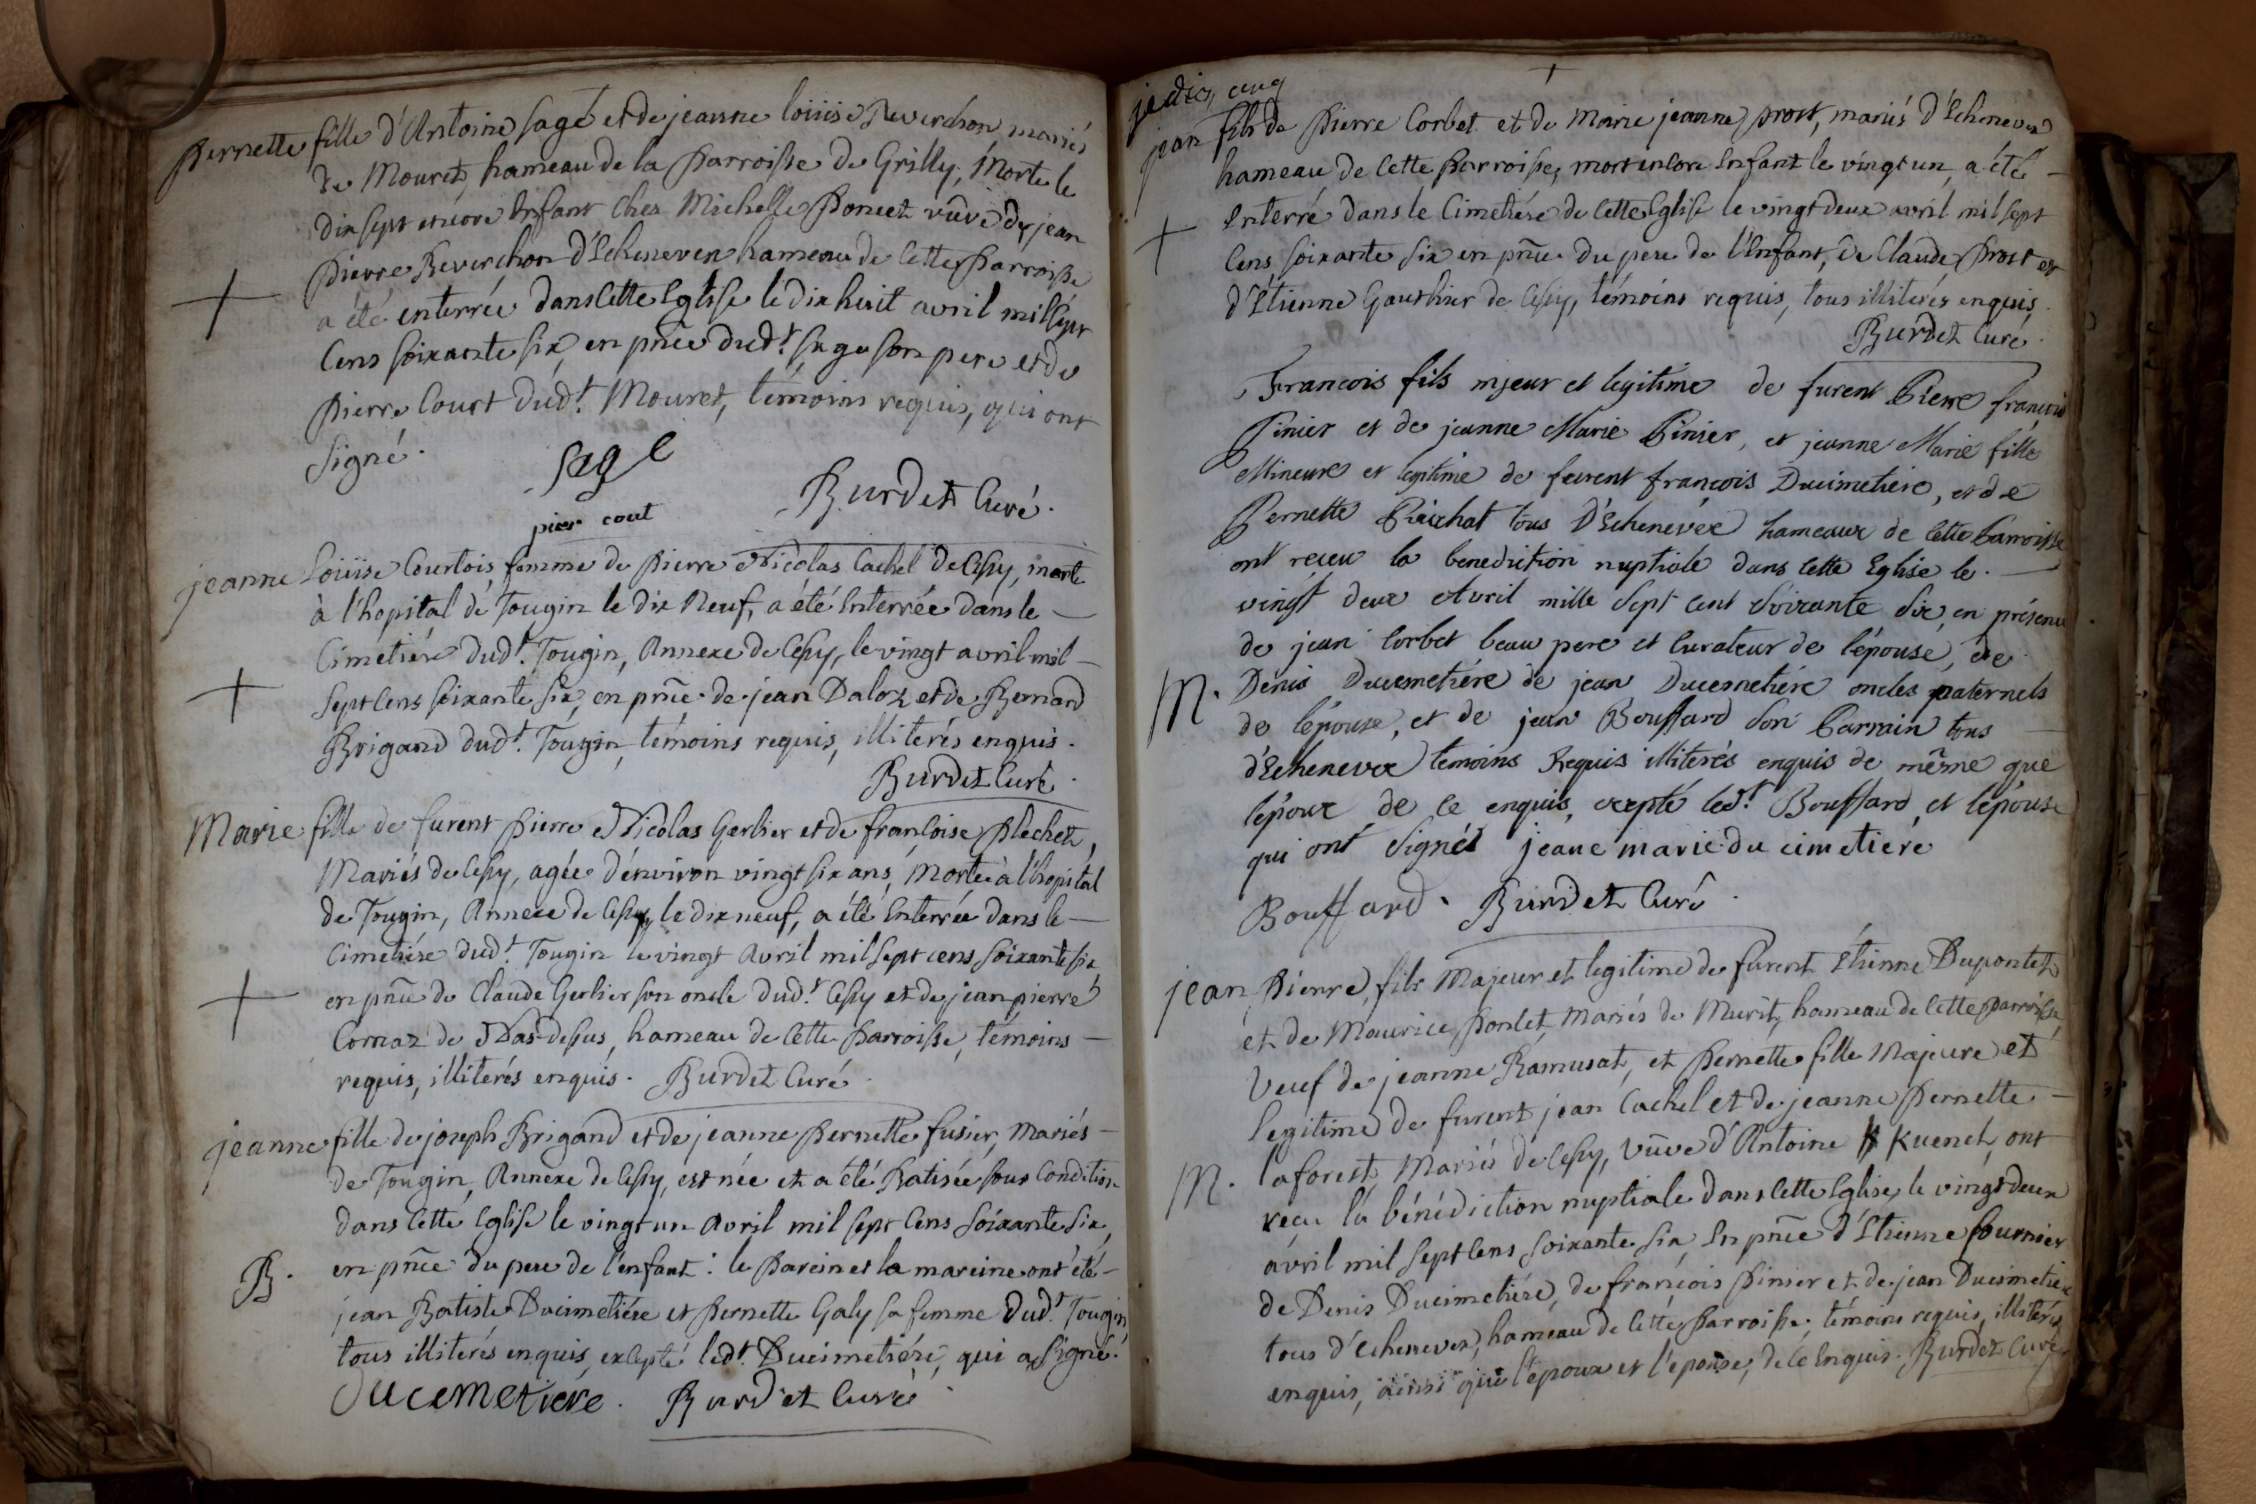 Pernette fille d'Antoine sage et de jeanne loüise Reverchon mariés
de Mouret, hameau de la Parroisse de Grilly, Morte le
dix sept encore Enfant chez Michelle Poncet vüve de jean
Pierre Reverchon d'Echenevex hameau de Cette Parroisse
a été enterrée dans Cette Eglise le dix huit avril mil sept
Cens soixante six, en pñce dudt. sage son pere et de
Pierre Court dudt. Mouret, témoins requis, qui ont
signé.
sage
pier cout
Burdet Curé.
jeanne Loüise Courtois femme de Pierre Nicolas Cachel de Cessy, morte
à l'hopital de Tougin le dix Neuf, a été Enterrée dans le
Cimetiére dudt. Tougin, Annexe de Cessy, le vingt avril mil
sept Cens soixante six, en pñce de jean Daloz et de Bernard
Brigand dudt. Tougin, témoins requis, illiterés enquis.
Burdet Curé.
Marie fille de furent Pierre Nicolas Gerlier et de françoise Plechet,
Mariés de Cessy, agée d'environ vingt six ans, Morte à l'hopital
de Tougin, Annexe de Cessy, le dix neuf, a été Enterrée dans le
Cimetiére dudt. Tougin le vingt Avril mil sept cens soixante six
en pñce de Claude Gerlier son oncle dudt. Cessy et de jean pierre
Cornaz de Nas-dessus, hameau de Cette Parroisse, témoins
requis, illiterés enquis. Burdet Curé
jeanne fille de joseph Brigand et de jeanne Pernette fusier, Mariés
de Tougin, Annexe de Cessy, est née et a été Batisée sous Condition
dans Cette Eglise le vingt un Avril mil sept Cens soixante six,
B. en pñce du pere de l'enfant: le Parein et la mareine ont été
jean Batiste Ducimetiére et Pernette Galy sa femme dudt. Tougin,
tous illiterés enquis, excepté ledt. Ducimetiére, qui a signé.
ducemetiere. Burdet Curé
jean fils de Pierre Corbet et de Marie jeanne prost, mariés d'Echenevex
hameau de Cette Parroisse, mort encore Enfant le vingt un, a été
Enterré dans le Cimetiére de Cette Eglise le vingt deux avril mil sept
Cens soixante six en pñce du pere de l'Enfant, de Claude Prost et
d'Etienne Gauthier de Cessy, témoins requis, tous illiterés enquis.
Burdet Curé.
Francois fils mjeur et legitime de furent Pierre françois
Pinier et de jeanne Marie Pinier, et jeanne Marie fille
Mineure et legitime de feurent françois Ducimetiére, et de
Pernette tous D'Echenévex hameaux de Cette Parroisse
ont receu la benediction nuptiale dans Cette Eglise le
vingt deux Avril mille sept cent soixante six, en présence
de jean Corbet beau pere et Curateur de l'épouse, de
M. Denis Ducemetiére de jean Ducemetiére oncles paternels
de lépouse, et de jean Bouffard son Parrain tous
d'Echenevex temoins Requis illiterés enquis de même que
lépoux de ce enquis, excepté ledt. Bouffard et lépouse
qui ont signés jeane marie du cimetiere
Bouffard. Burdet Curé.
jean Pierre, fils Majeur et legitime de furent Etienne Dupontet
et de Maurice Ponlet, Mariés de Murit, hameau de Cette Parroisse,
Veuf de jeanne Ramusat, et Pernette fille Majeure et
legitime de furent jean Cachel et de jeanne Pernette
M. laforest Mariés de Cessy, vüve d'Antoine Kuench, ont
reçu la bénédiction nuptiale dans Cette Eglise, le vingt deux
avril mil sept Cens soixante six, En pñce d'Etienne fournier
de Denis Ducimetiére, de françois Pinier et de jean Ducimetiére
tous d'Echenevex, hameau de Cette Parroisse, témoins requis, illiterés
enquis, ainsi que l'époux et l'epouse, de Ce Enquis. Burdet Curé